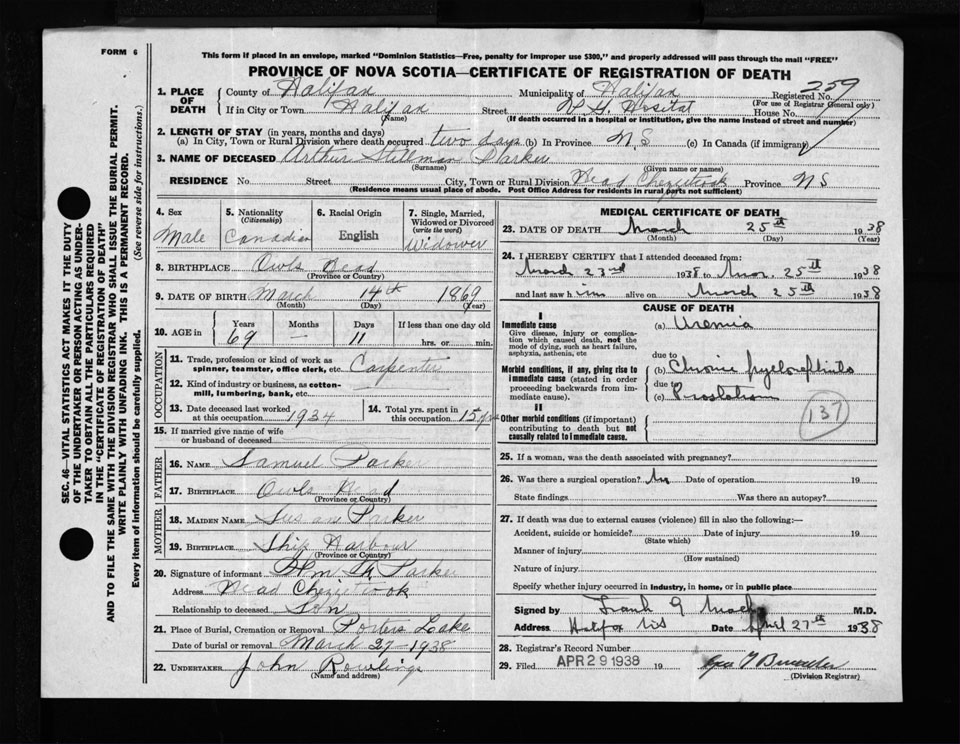 FORM 6
This form if placed in an envelope, marked "Dominion Statistics—Free, penalty for improper use $300," and properly addressed will pass through the mail "FREE"
PROVINCE OF NOVA SCOTIA—CERTIFICATE OF REGISTRATION OF DEATH
1. PLACE OF DEATH County of Halifax Municipality of Halifax Registered No. 259
(For use of Registrar General only)
If in City or Town Halifax Street V G Hospital House No.
(Name) (If death occurred in a hospital or institution, give the name instead of street and number)
2. LENGTH OF STAY (in years, months and days)
(a) In City, Town or Rural Division where death occurred two days (b) In Province N.S (c) In Canada (if immigrant)
3. NAME OF DECEASED Arthur Stillman Parker
(Surname) (Given name or names)
RESIDENCE No Street City, Town or Rural Division Head Chezzetcook Province NS
(Residence means usual place of abode. Post Office Address for residents in rural parts not sufficient)
4. Sex Male
5. Nationality (Citizenship) Canadian
6. Racial Origin English
7. Single, Married, Widowed or Divorced (write the word) Widower
8. BIRTHPLACE Owls Head
(Province or Country)
9. DATE OF BIRTH March 14th 1869
(Month) (Day) (Year)
10. AGE in Years Months Days If less than one day old
69 — 11 hrs. or min.
OCCUPATION
11. Trade, profession or kind of work as spinner, teamster, office clerk, etc. Carpenter
12. Kind of industry or business, as cotton-mill, lumbering, bank, etc.
13. Date deceased last worked at this occupation 1934
14. Total yrs. spent in this occupation 15 yrs
15. If married give name of wife or husband of deceased
FATHER
16. NAME Samuel Parker
17. BIRTHPLACE Owls Head
(Province or Country)
MOTHER
18. MAIDEN NAME Susan Parker
19. BIRTHPLACE Ship Harbour
(Province or Country)
20. Signature of informant Parker
Address Head Chezzetcook
Relationship to deceased Son
21. Place of Burial, Cremation or Removal Porters Lake
Date of burial or removal March 27-1938
22. UNDERTAKER John Rowlings
(Name and address)
MEDICAL CERTIFICATE OF DEATH
23. DATE OF DEATH March 25th 1938
(Month) (Day) (Year)
24. I HEREBY CERTIFY that I attended deceased from:
March 23rd 1938 to Mar. 25th 1938
and last saw him alive on March 25th 1938
CAUSE OF DEATH
I
Immediate cause (a) Uremia
Give disease, injury or complication which caused death, not the mode of dying, such as heart failure, asphyxia, asthenia, etc
due to
Morbid conditions, if any, giving rise to immediate cause (stated in order proceeding backwards from immediate cause). (b) Chronic pyelonephritis
due to
(c) Prostatism
II
Other morbid conditions (if important) contributing to death but not causally related to immediate cause.
137
25. If a woman, was the death associated with pregnancy?
26. Was there a surgical operation? Date of operation 19
State findings Was there an autopsy?
27. If death was due to external causes (violence) fill in also the following:—
Accident, suicide or homicide? Date of injury 19
(State which)
Manner of injury
(How sustained)
Nature of injury
Specify whether injury occurred in industry, in home, or in public place
Signed by Frank G Mack M.D.
Address Halifax NS Date April 27th 1938
28. Registrar's Record Number
29. Filed APR 29 1938 19
(Division Registrar)
SEC. 46—VITAL STATISTICS ACT MAKES IT THE DUTY
OF THE UNDERTAKER OR PERSON ACTING AS UNDER-
TAKER TO OBTAIN ALL THE PARTICULARS REQUIRED
IN THE "CERTIFICATE OF REGISTRATION OF DEATH"
AND TO FILE THE SAME WITH THE DIVISION REGISTRAR WHO SHALL ISSUE THE BURIAL PERMIT.
WRITE PLAINLY WITH UNFADING INK. THIS IS A PERMANENT RECORD.
Every item of information should be carefully supplied. (See reverse side for instructions.)